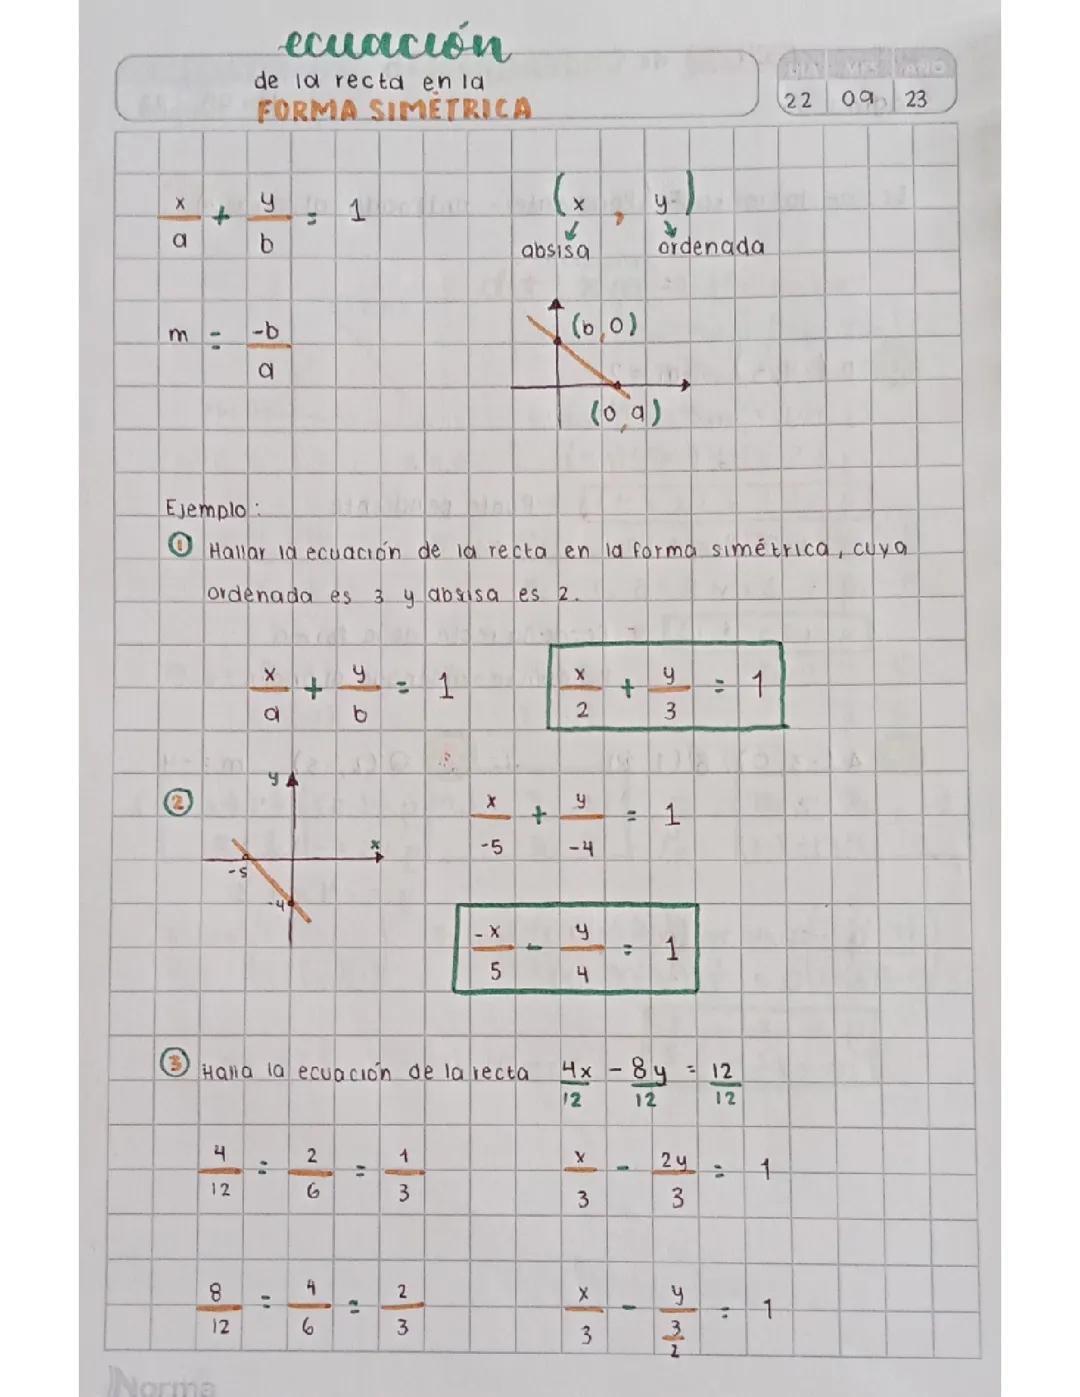 ecuación
de la recta en la
FORMA SIMÉTRICA
DIA MES AÑO
22 09 23
x/a + y/b = 1
(x, y)
absisa ordenada
m = -b/a
(b,0)
(0,a)
Ejemplo:
① Hallar la ecuación de la recta en la forma simétrica, cuya
ordenada es 3 y absisa es 2.
x/a + y/b = 1
x/2 + y/3 = 1
②
y
x
-5
-4
x/-5 + y/-4 = 1
-x/5 - y/4 = 1
③ Halla la ecuación de la recta 4x/12 - 8y/12 = 12/12
4/12 = 2/6 = 1/3
x/3 - 2y/3 = 1
8/12 = 4/6 = 2/3
x/3 - y/(3/2) = 1
Norma